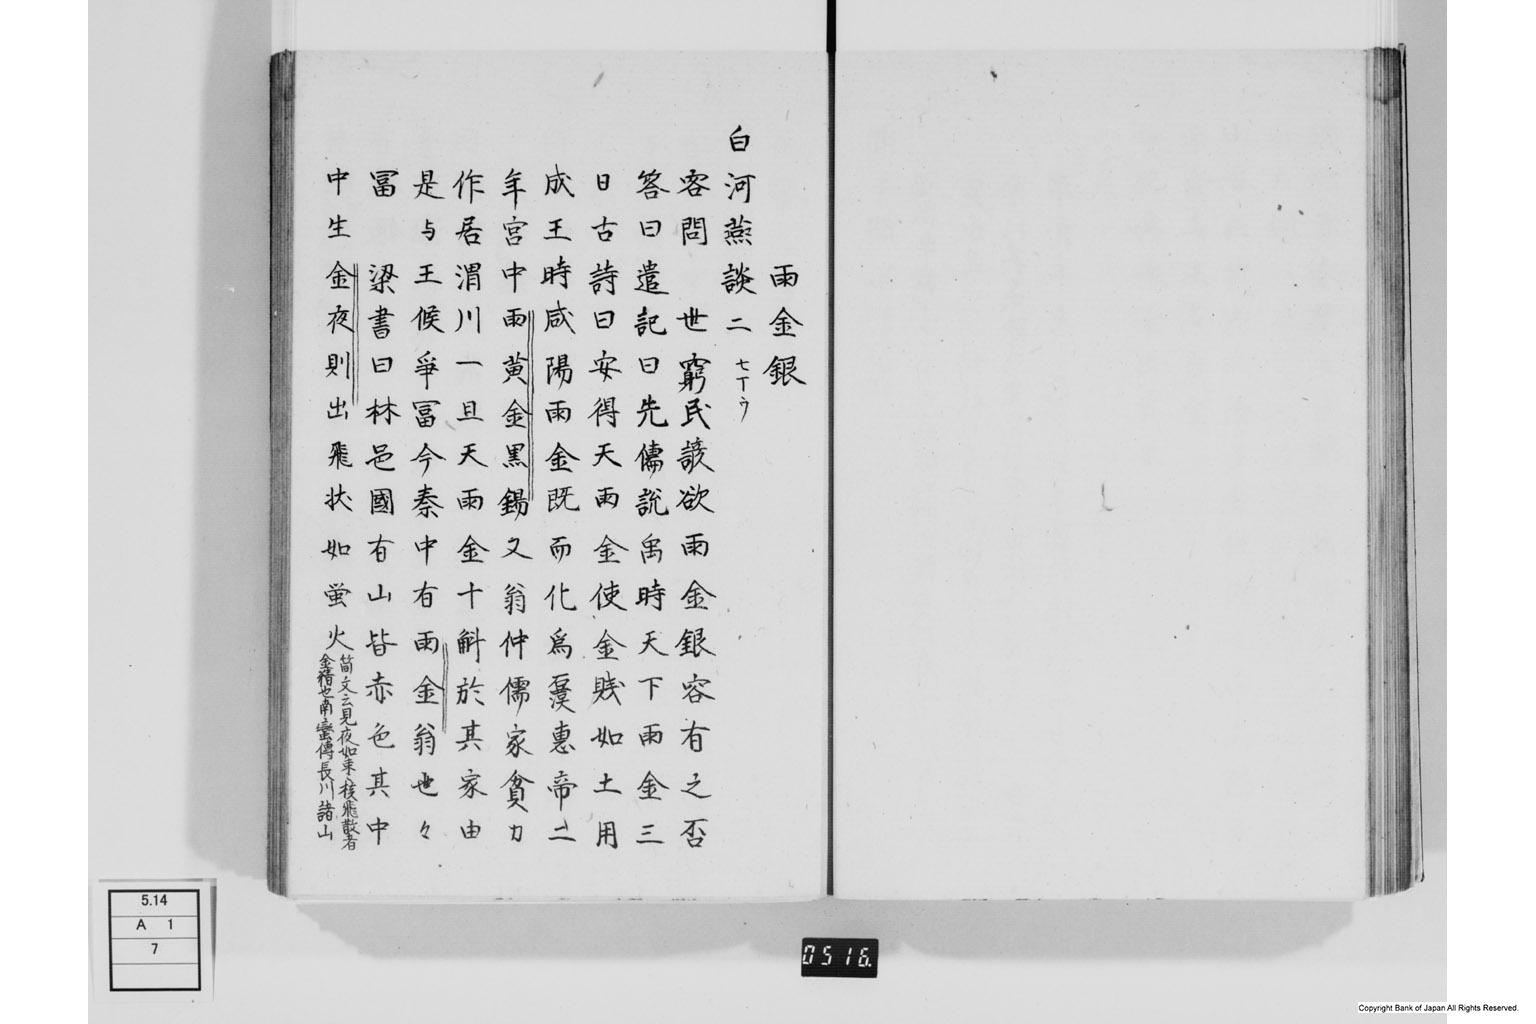 雨金銀
白河燕談二 七丁ウ
客問 世窮民諺欲雨金銀容有之否
答曰遣記曰先儒説禹時天下雨金三
日古詩曰安得天雨金使金賤如土用
成王時咸陽雨金既而化為 惠帝二
年宮中雨黄金黒錫又翁仲儒家貧力
作居渭川一旦天雨金十斛於其家由
是与王候爭冨今秦中有雨金翁世々
冨 梁書曰林邑國有山皆赤色其中
中生金夜則出飛状如蛍火
簡文云見夜如束 棱飛散者
金精也南蠻傳長川諸山
5.14
A 1
7
0516.
Copyright Bank of Japan All Rights Reserved.